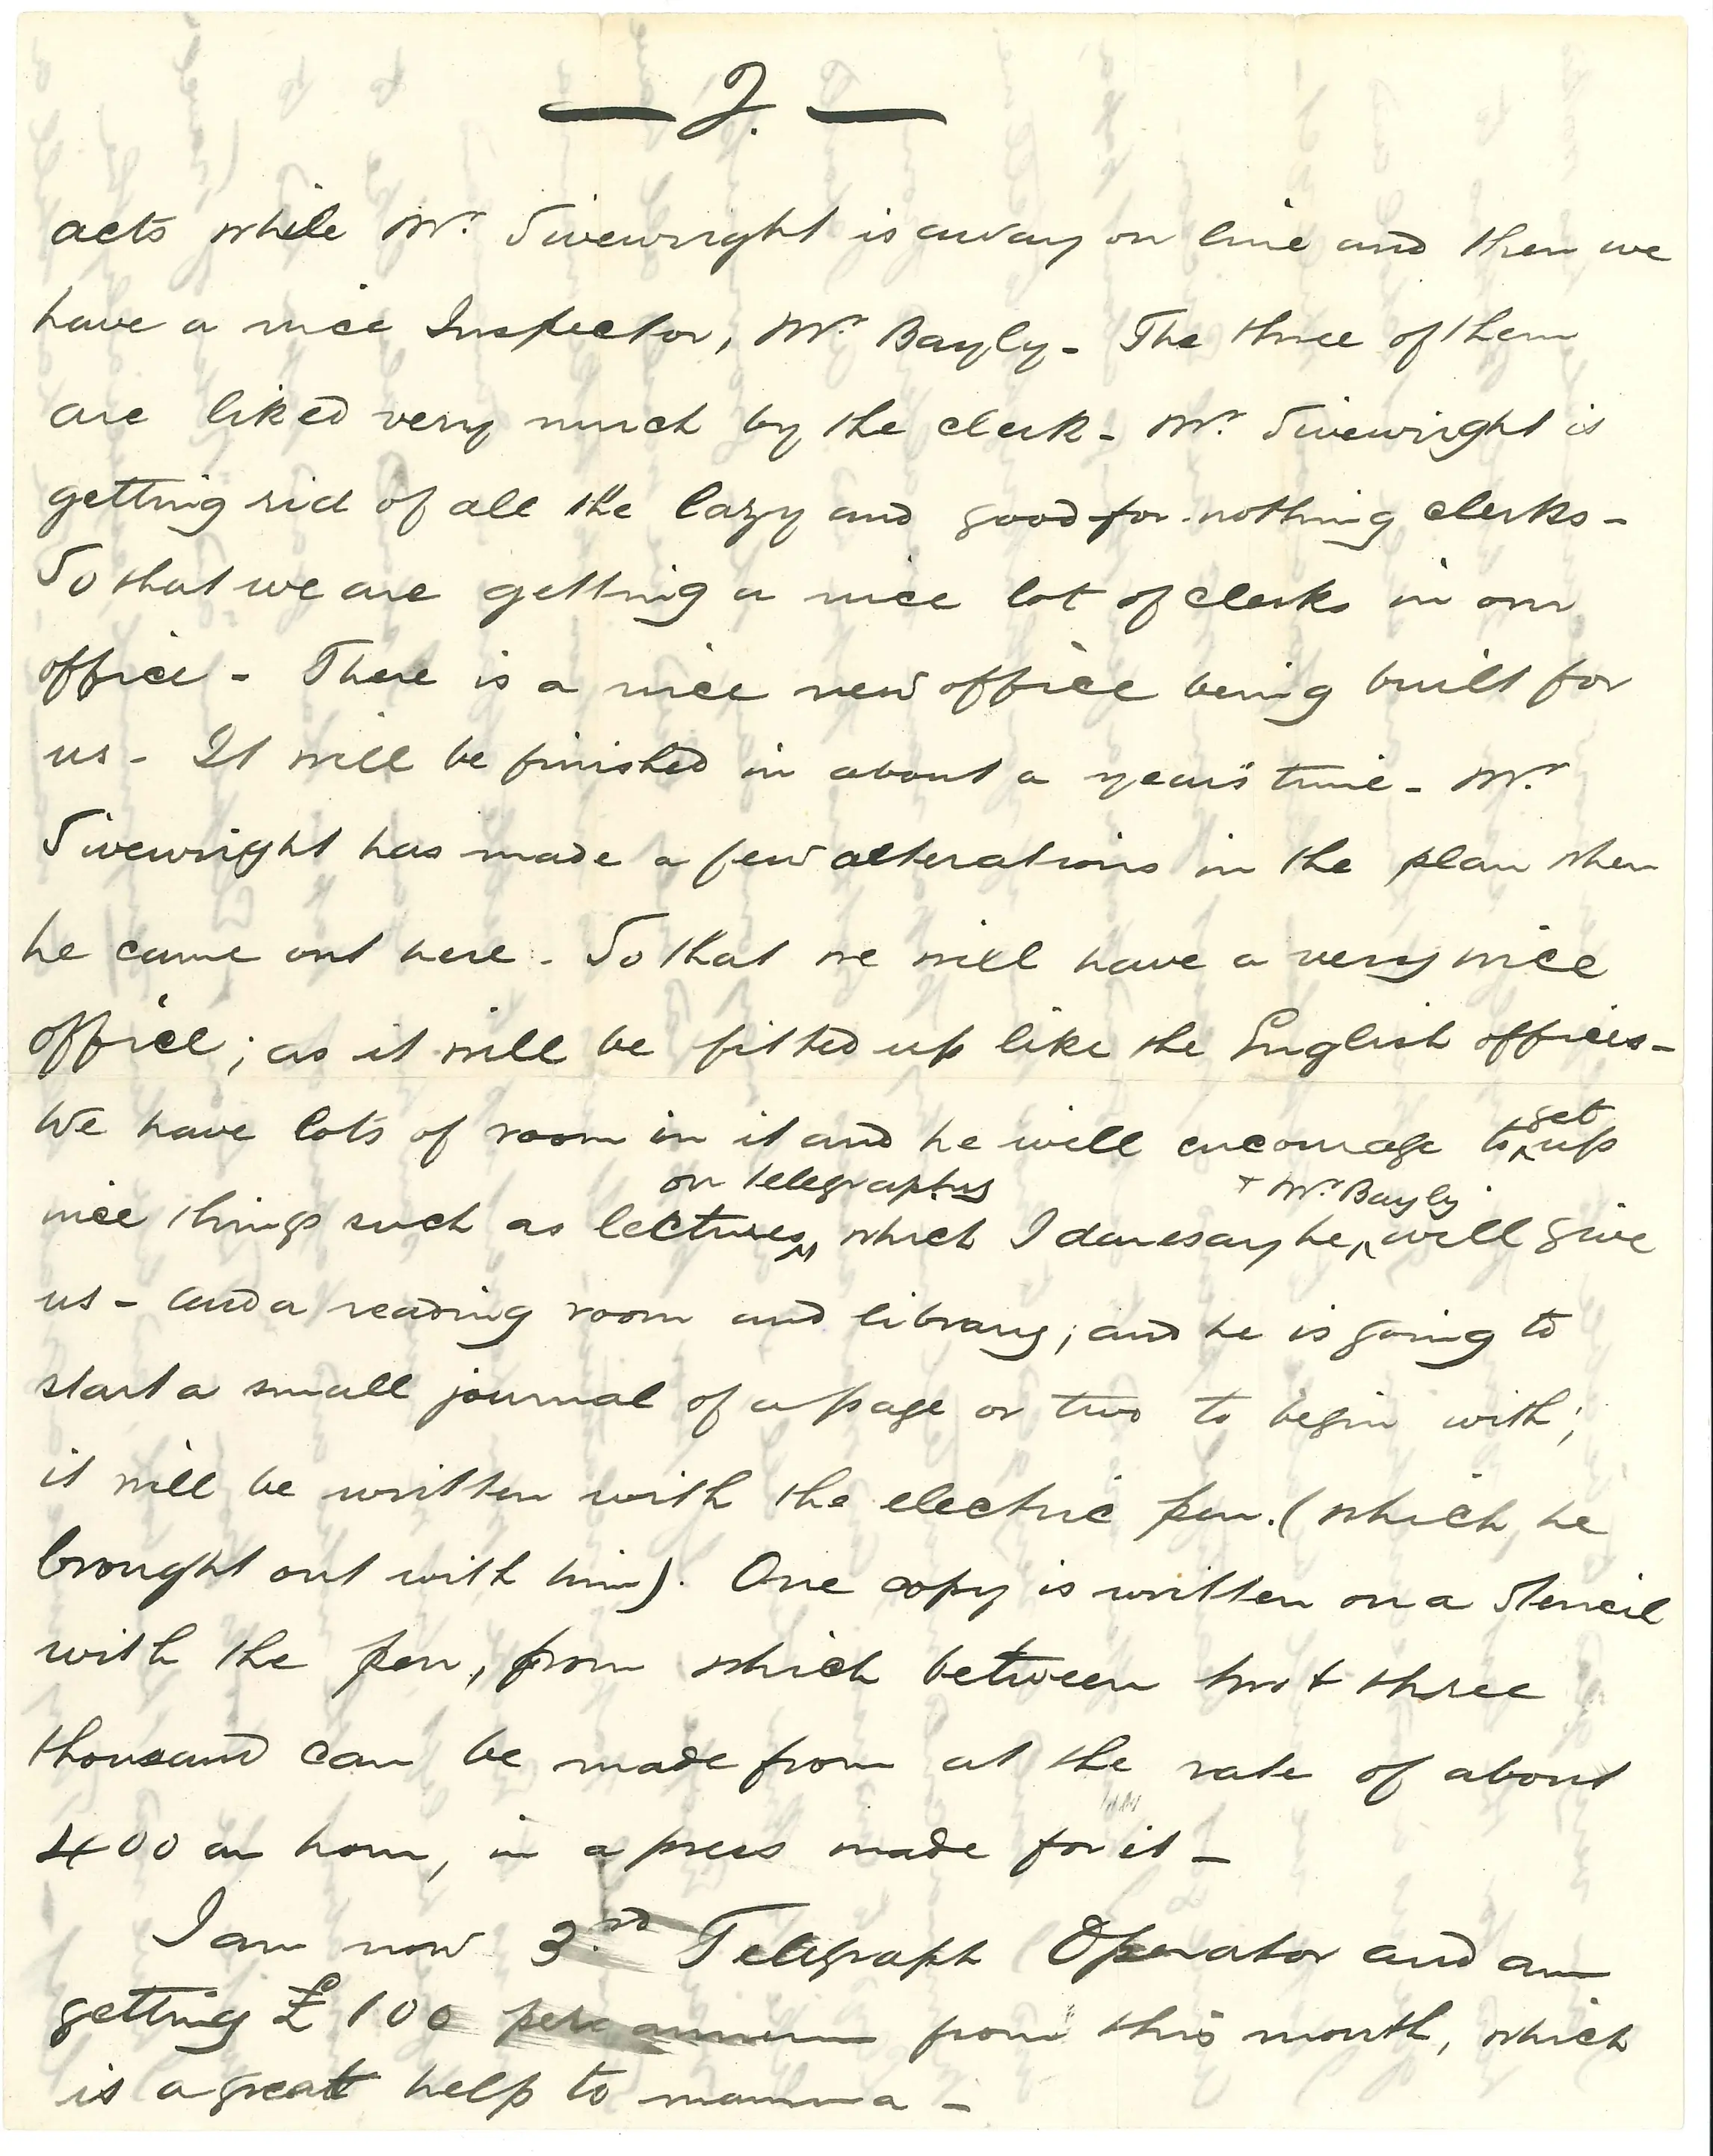 — 2. —
acts while Mr. Sivewright is away on line and then we
have a nice Inspector, Mr. Bayly - The three of them
are liked very much by the clerk - Mr. Sivewright is
getting rid of all the lazy and good-for-nothing clerks -
So that we are getting a nice lot of clerks in our
office - There is a nice new office being built for
us - It will be finished in about a year's time - Mr.
Sivewright has made a few alterations in the plan when
he came out here - So that we will have a very nice
office; as it will be fitted up like the English offices -
We have lots of room in it and he will encourage to ^get up
nice things such as lectures ^on telegraphs, which I daresay he ^+ Mr Bayly will give
us - and a reading room and library; and he is going to
start a small journal of a page or two to begin with;
it will be written with the electric pen. (which he
brought out with him). One copy is written on a stencil
with the pen, from which between two + three
thousand can be made from at the rate of about
400 an hour, in a press made for it -
I am now 3rd Telegraph Operator and am
getting £100 per annum from this month, which
is a great help to mamma -